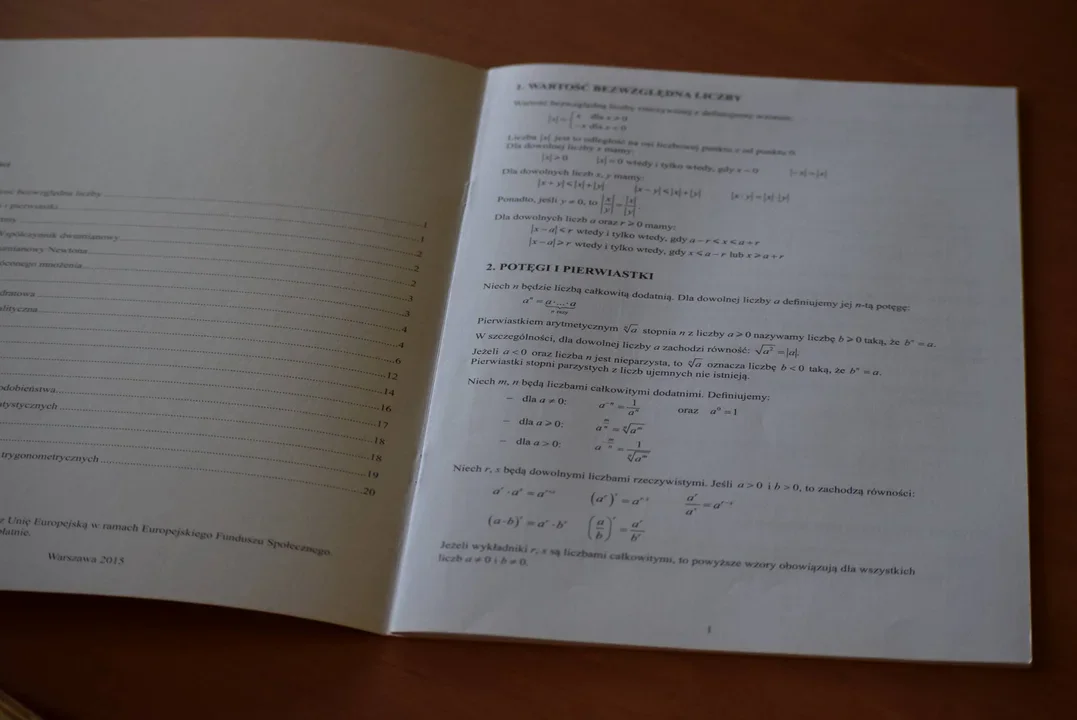 liczby
i pierwiastki
1
Współczynnik dwumianowy
1
Newtona
2
mnożenia
2
2
3
3
4
4
6
12
14
16
17
18
18
trygonometrycznych
19
20
z Unię Europejską w ramach Europejskiego Funduszu Społecznego.
Warszawa 2015
1. WARTOŚĆ BEZWZGLĘDNA LICZBY
Wartość bezwzględną liczby rzeczywistej x definiujemy wzorem:
|x| = { x dla x ≥ 0
−x dla x < 0
Liczba |x| jest to odległość na osi liczbowej punktu x od punktu 0.
Dla dowolnej liczby x mamy:
|x| ≥ 0 |x| = 0 wtedy i tylko wtedy, gdy x = 0 |−x| = |x|
Dla dowolnych liczb x, y mamy:
|x + y| ≤ |x| + |y| |x − y| ≤ |x| + |y| |x · y| = |x| · |y|
Ponadto, jeśli y ≠ 0, to |x/y| = |x|/|y|.
Dla dowolnych liczb a oraz r ≥ 0 mamy:
|x − a| ≤ r wtedy i tylko wtedy, gdy a − r ≤ x ≤ a + r
|x − a| ≥ r wtedy i tylko wtedy, gdy x ≤ a − r lub x ≥ a + r
2. POTĘGI I PIERWIASTKI
Niech n będzie liczbą całkowitą dodatnią. Dla dowolnej liczby a definiujemy jej n-tą potęgę:
aⁿ = a·...·a
n razy
Pierwiastkiem arytmetycznym ⁿ√a stopnia n z liczby a ≥ 0 nazywamy liczbę b ≥ 0 taką, że bⁿ = a.
W szczególności, dla dowolnej liczby a zachodzi równość: √a² = |a|.
Jeżeli a < 0 oraz liczba n jest nieparzysta, to ⁿ√a oznacza liczbę b < 0 taką, że bⁿ = a.
Pierwiastki stopni parzystych z liczb ujemnych nie istnieją.
Niech m, n będą liczbami całkowitymi dodatnimi. Definiujemy:
– dla a ≠ 0: a⁻ⁿ = 1/aⁿ oraz a⁰ = 1
– dla a ≥ 0: a^(m/n) = ⁿ√aᵐ
– dla a > 0: a^(−m/n) = 1/ⁿ√aᵐ
Niech r, s będą dowolnymi liczbami rzeczywistymi. Jeśli a > 0 i b > 0, to zachodzą równości:
aʳ · aˢ = aʳ⁺ˢ (aʳ)ˢ = aʳ·ˢ aʳ/aˢ = aʳ⁻ˢ
(a·b)ʳ = aʳ · bʳ (a/b)ʳ = aʳ/bʳ
Jeżeli wykładniki r, s są liczbami całkowitymi, to powyższe wzory obowiązują dla wszystkich
liczb a ≠ 0 i b ≠ 0.
1